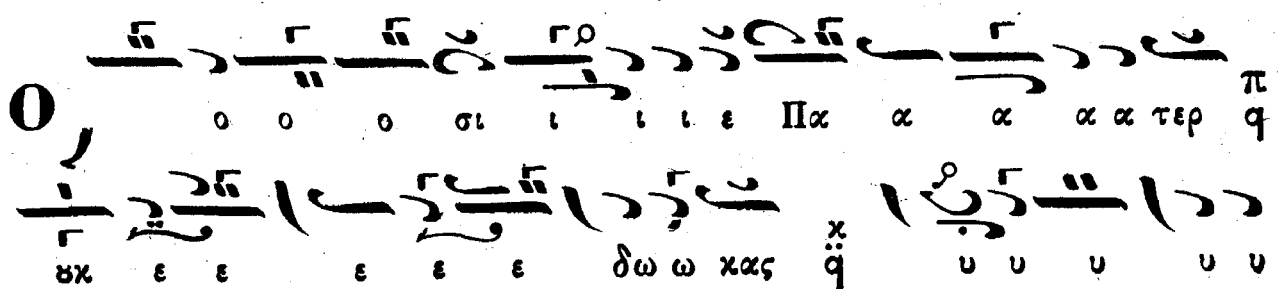 Ο, ο ο ο σι ι ι ι ε Πα α α α α τερ π q
ȣκ ε ε ε ε ε δω ω κας κ q̈ υ υ υ υ υ